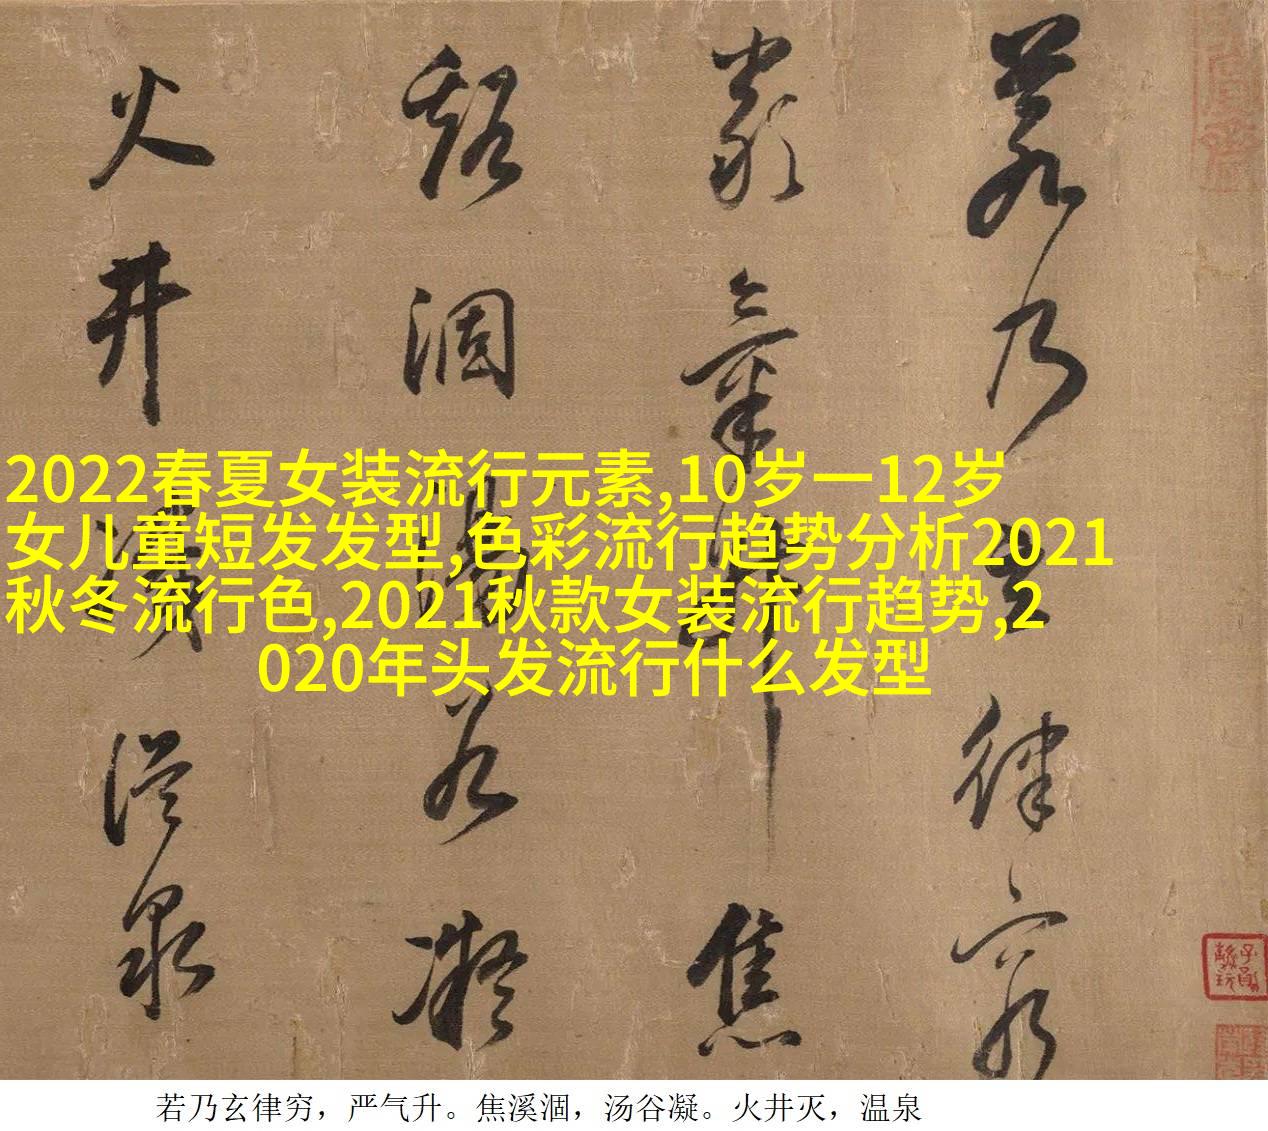 若乃玄律窮
嚴氣升焦
谿涸湯谷凝
火井滅溫泉
2022春夏女装流行元素,10岁一12岁
女儿童短发发型,色彩流行趋势分析2021
秋冬流行色,2021秋款女装流行趋势,2
020年头发流行什么发型
若乃玄律穷，严气升。焦溪涸，汤谷凝。火井灭，温泉